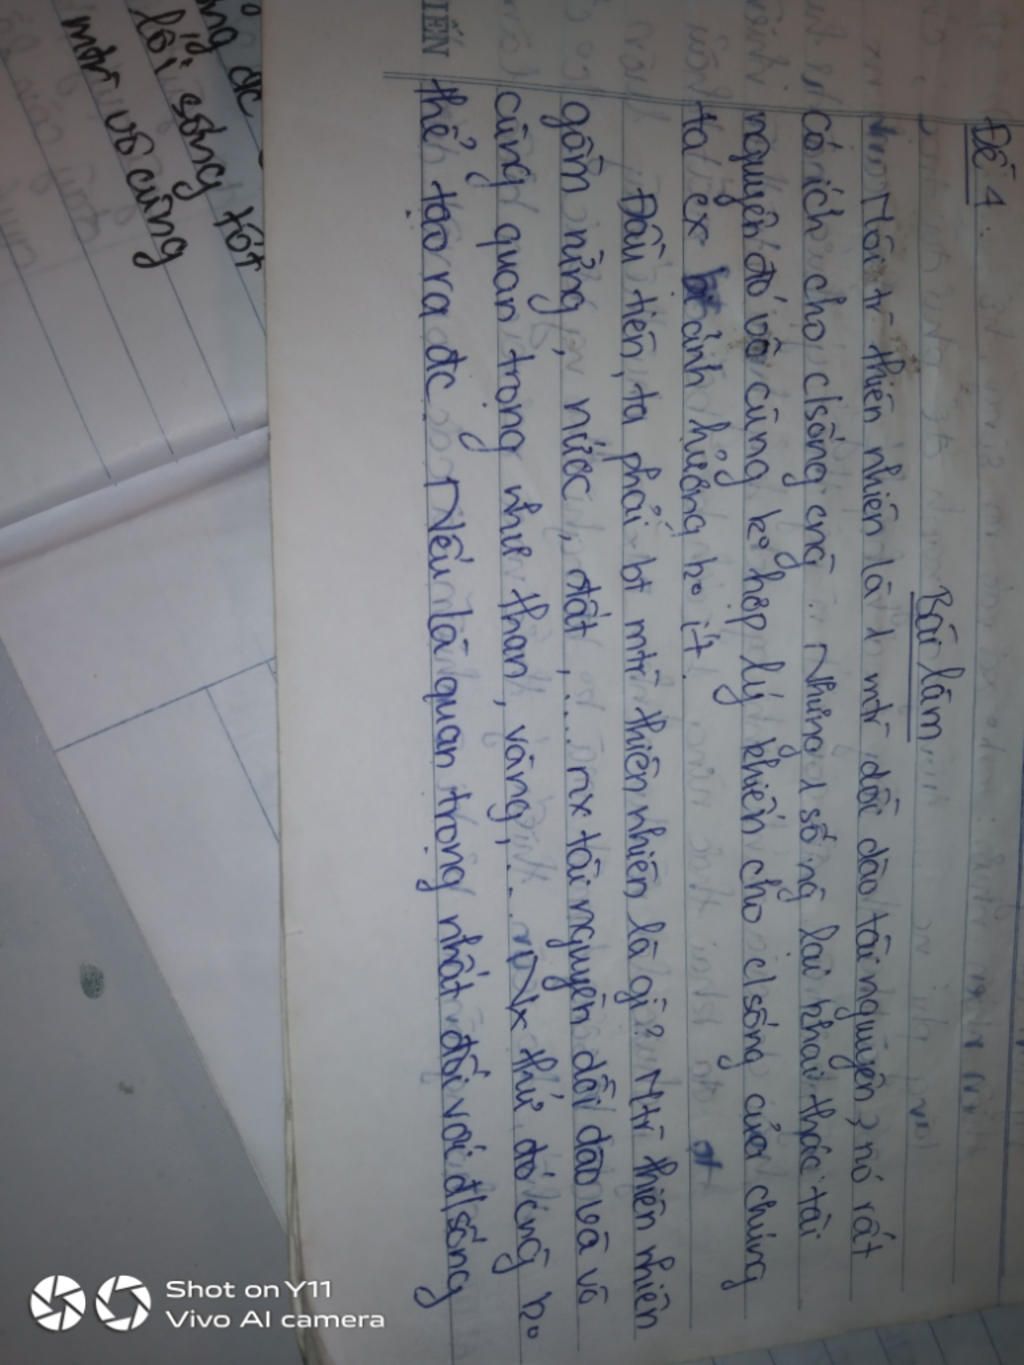 Đề 4.
Bài làm
Môi tr thiên nhiên là 1 mtr dồi dào tài nguyên, nó rất
có ích cho c/sống cng. Nhưng 1 số ng lại khai thác tài
nguyên đó vô cùng ko hợp lý khiến cho c/sống của chúng
ta cx ảnh hưởng ko ít.
Đầu tiên, ta phải bt mtr thiên nhiên là gì? Mtr thiên nhiên
gồm rừng, nước, đất,... nx tài nguyên dồi dào và vô
cùng quan trọng như than, vàng,... Nx thứ đó cng ko
thể tạo ra đc. Nếu là quan trọng nhất đối với đ/sống
IẾN
ng đc
lối sống tốt
môn vô cùng
Shot on Y11
Vivo AI camera